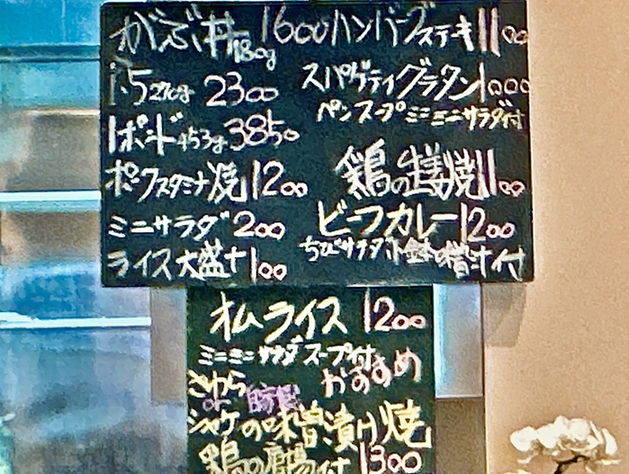 がぶ丼180g 1600
1.5 270g 2300
1ポンド453g 3850
ポークスタミナ焼 1200
ミニサラダ 200
ライス大盛 + 100
ハンバーグステーキ 1100
スパゲティグラタン 1000
ミニミニサラダ付
鶏の生姜焼 1100
ビーフカレー 1200
ちびサラダ 汁付
オムライス 1200
ミニミニサラダ スープ付
さわら おすすめ
or 自家製
シャケの味噌漬け焼
鶏の唐揚付 1300